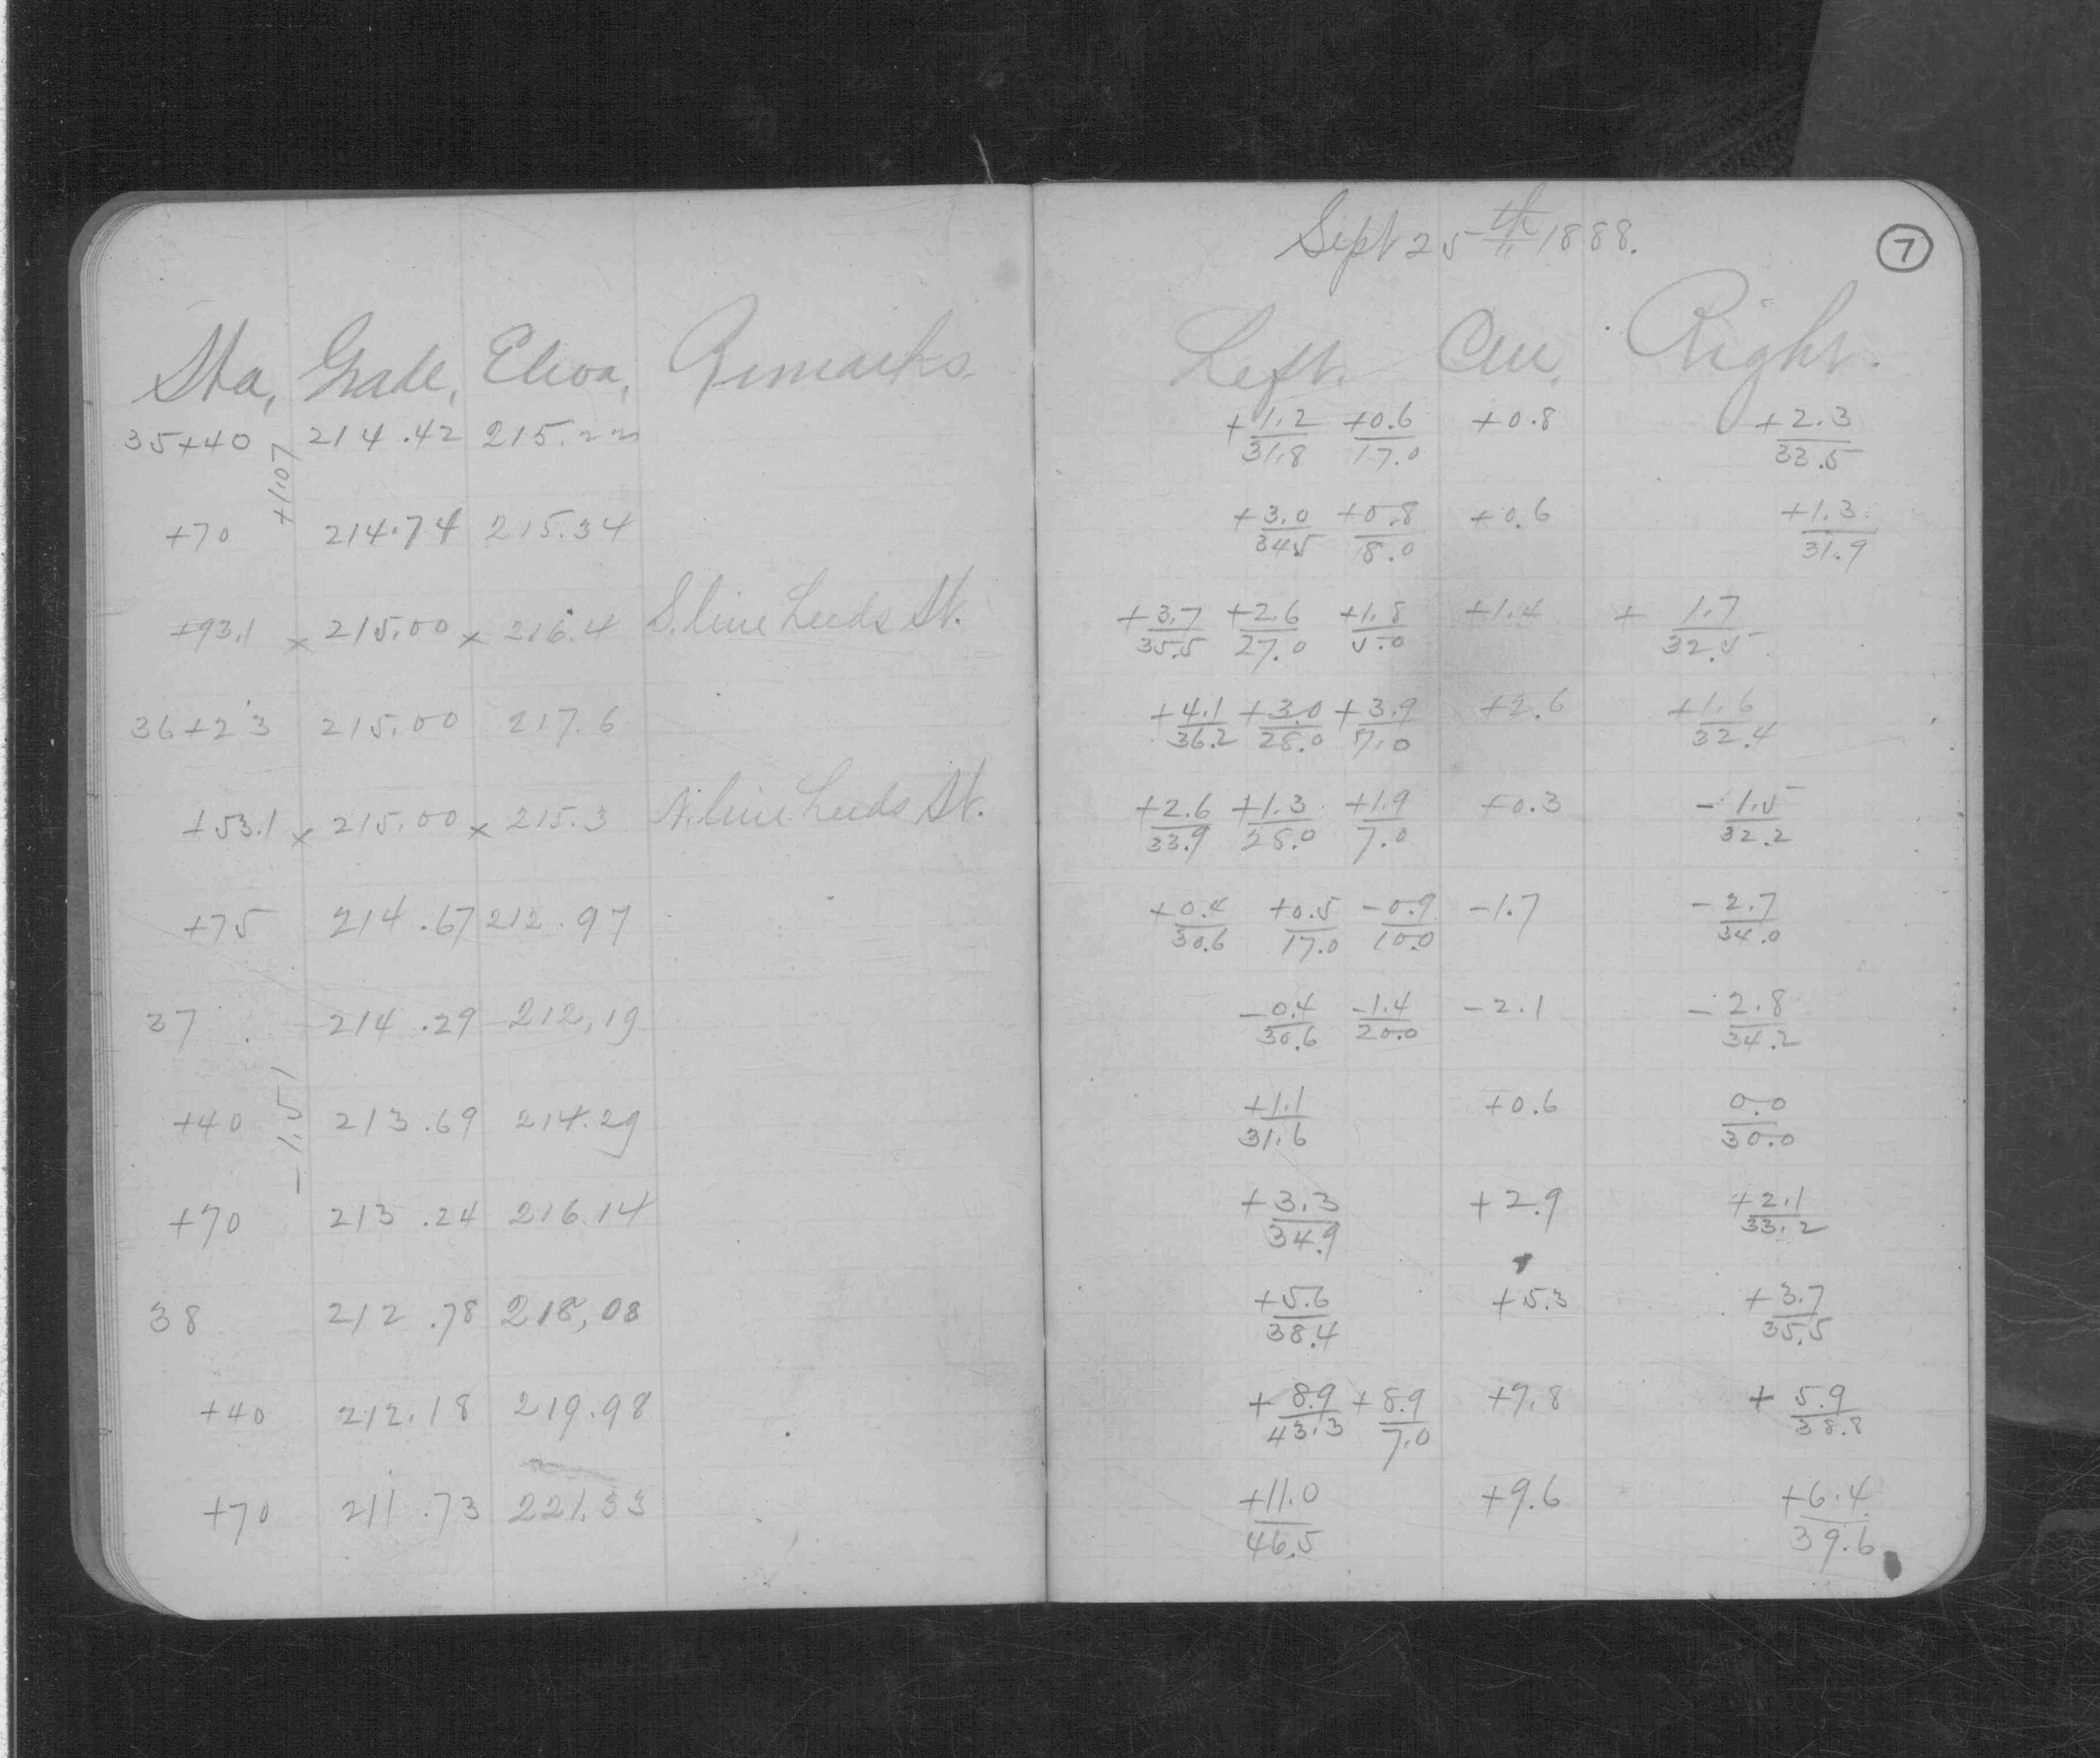 Sept 25th 1888.
7
Sta, Grade, Eleva, Remarks Left. Cen, Right.
35+40 214.42 215.22 +1.2/31.8 +0.6/17.0 +0.8 +2.3/33.5
+1.07
+70 214.74 215.34 +3.0/34.5 +0.8/18.0 +0.6 +1.3/31.9
+93.1 x 215.00 x 216.4 S. line Leeds St. +3.7/35.5 +2.6/27.0 +1.8/5.0 +1.4 +1.7/32.5
36+23 215.00 217.6 +4.1/36.2 +3.0/28.0 +3.9/7.0 +2.6 +1.6/32.4
+53.1 x 215.00 x 215.3 N. line Leeds St. +2.6/33.9 +1.3/28.0 +1.9/7.0 +0.3 -1.5/32.2
+75 214.67 212.97 +0.4/30.6 +0.5/17.0 -0.9/10.0 -1.7 -2.7/34.0
37 214.29 212,19 -0.4/30.6 -1.4/20.0 -2.1 -2.8/34.2
-1.51
+40 213.69 214.29 +1.1/31.6 +0.6 0.0/30.0
+70 213.24 216.14 +3.3/34.9 +2.9 +2.1/33.2
38 212.78 218,08 +5.6/38.4 +5.3 +3.7/35.5
+40 212.18 219.98 +8.9/43.3 +8.9/7.0 +7.8 +5.9/38.8
+70 211.73 221.33 +11.0/46.5 +9.6 +6.4/39.6